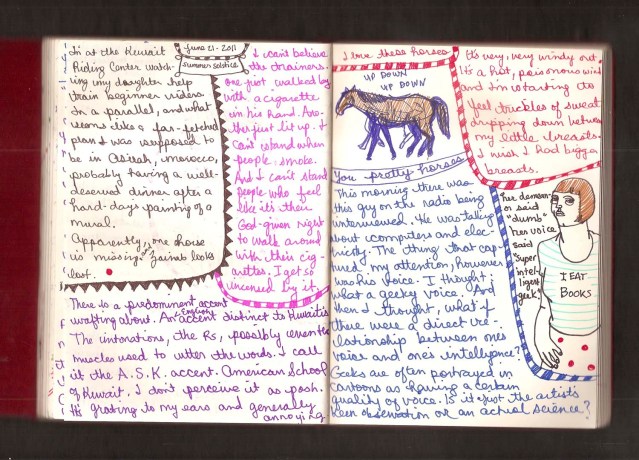 June 21 - 2011
Summer solstice
I'm at the Kuwait
Riding Center watch-
ing my daughter help
train beginner riders.
In a parallel, and what
seems like a far-fetched
plan I was supposed to
be in Asilah, morocco,
probably having a well-
deserved dinner after a
hard-days painting of a
mural.
Apparently, one horse
is missing. Faiza looks
lost.
I can't believe
the trainers.
one just walked by
with a cigarette
in his hand. Ano-
ther just lit up. I
can't stand when
people smoke.
And I can't stand
people who feel
like it's their
God-given right
to walk around
with their cig-
arettes. I get so
incensed by it.
There is a predominant accent
wafting about. An English accent distinct to Kuwaitis
The intonations, the Rs, possibly even the
muscles used to utter the words. I call
it the A.S.K. accent. American School
of Kuwait. I don't perceive it as posh.
It's grating to my ears and generally
annoying
I love these horses
UP DOWN
UP DOWN
You pretty horses
It's very, very windy out.
It's a hot, poisonous wind
and I'm starting to
feel trickles of sweat
dripping down between
my little breasts.
I wish I had bigger
breasts.
This morning there was
this guy on the radio being
interviewed. He was talking
about computers and elec-
tricity. The thing that cap-
tured my attention, however
was his voice. I thought:
what a geeky voice. And
then I thought, what if
there were a direct re-
lationship between ones
voice and one's intelligence?
Geeks are often portrayed in
cartoons as having a certain
quality of voice. Is it just the artist's
keen observation or an actual science?
her demean-
or said
"dumb"
her voice
said
"super
intel-
ligent
geek"
I EAT
BOOKS